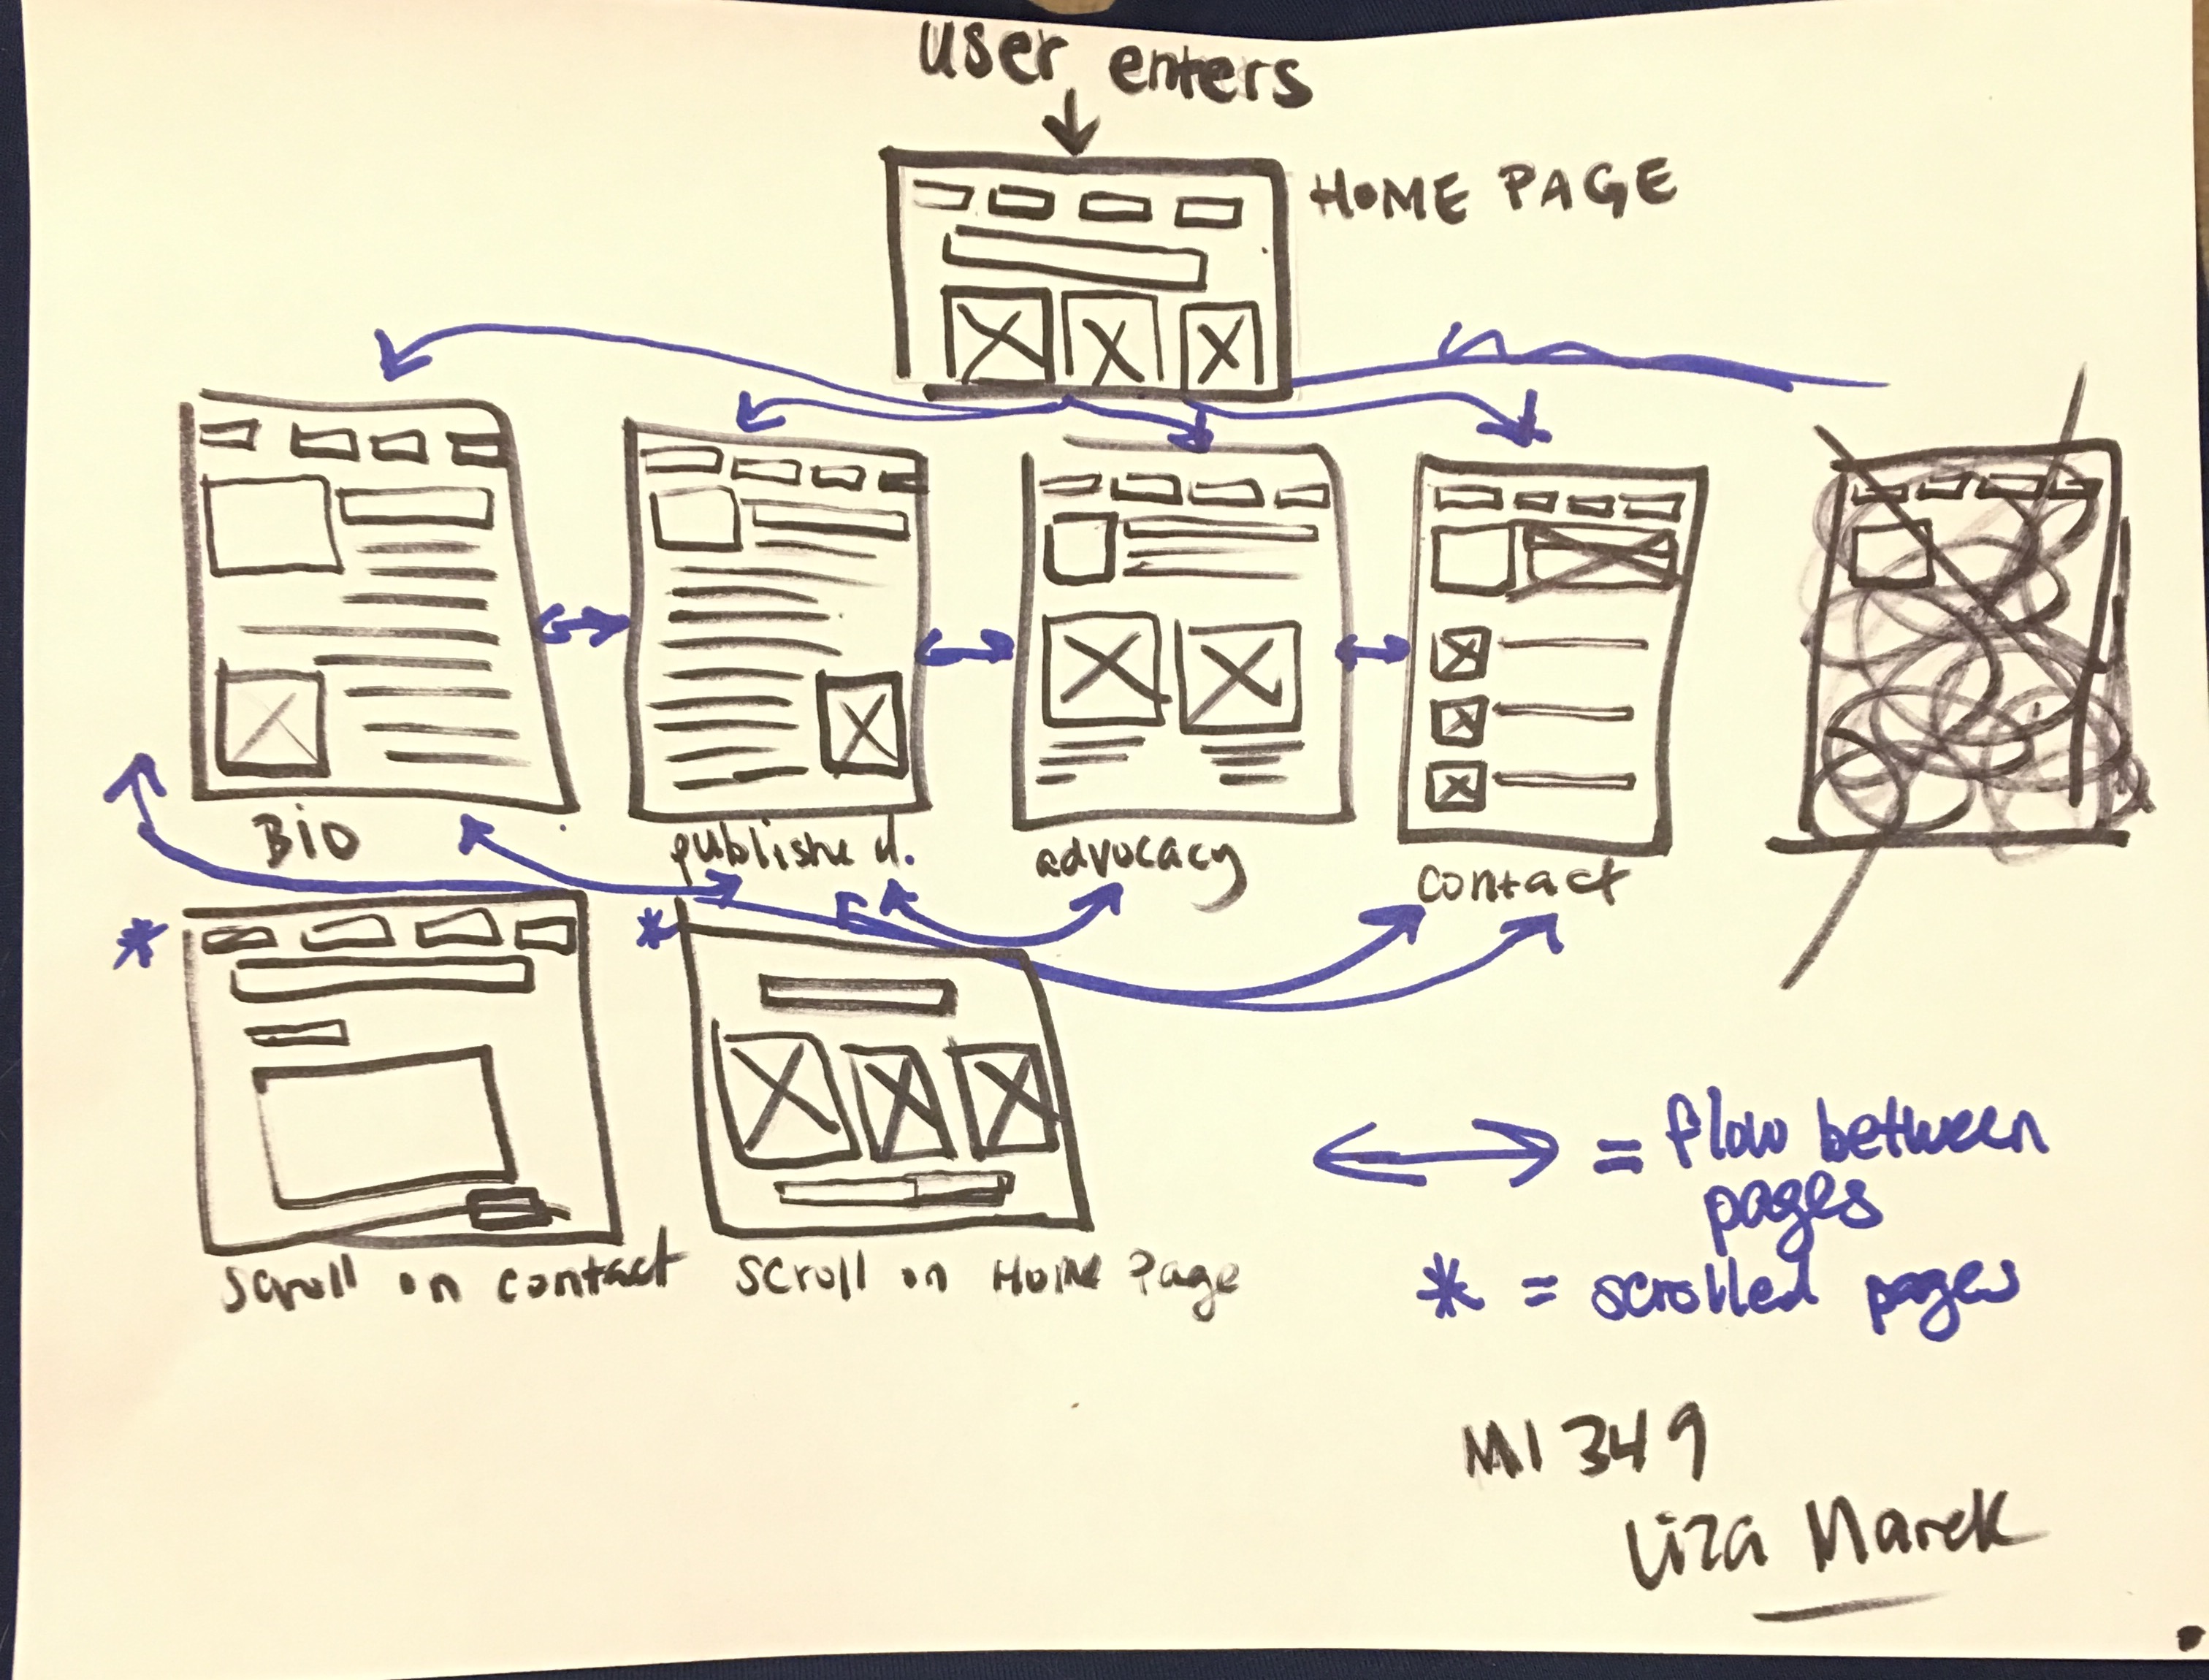 user enters
HOME PAGE
Bio
published.
advocacy
contact
scroll on contact
scroll on Home Page
= flow between
pages
* = scrolled pages
MI 349
Liza Marek